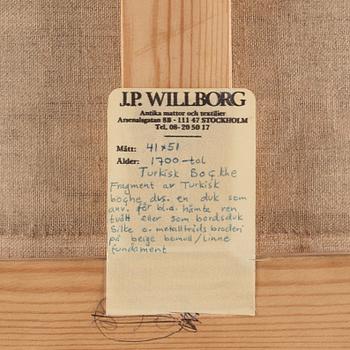 J.P. WILLBORG
Antika mattor och textilier
Arsenalsgatan 8B - 111 47 STOCKHOLM
Tel. 08-20 50 17
Mått: 41×51
Ålder: 1700-tal
Turkisk Boçkhe
Fragment av Turkisk
boghe dvs. en duk som
anv. för bl.a. hämta ren
tvätt eller som bordsduk
Silke o. metalltråds broderi
på beige bomull/linne
fundament